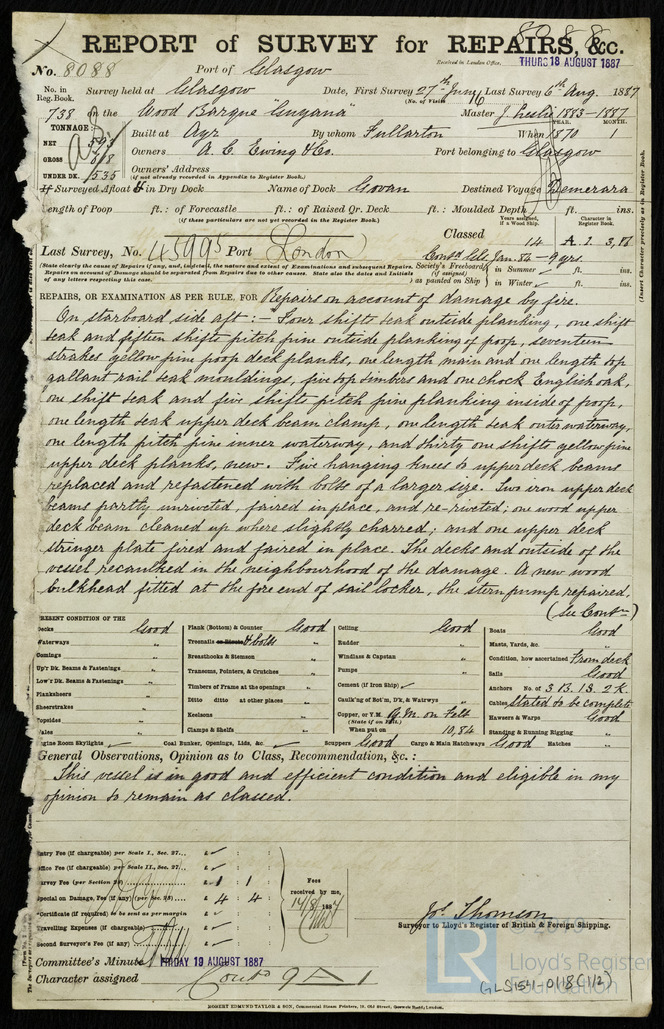 8088
REPORT of SURVEY for REPAIRS, &c.
Received in London Office, THURS 18 AUGUST 1887
No. 8088 Port of Glasgow
No. in Reg. Book. Survey held at Glasgow Date, First Survey 27th June Last Survey 6th Aug. 1887
(No. of Visits 16
738 on the Wood Barque "Guyana" Master J. Leslie 1883-1887
YEAR. MONTH.
TONNAGE: Built at Ayr By whom Fullarton When 1870
NET 593
GROSS 618 Owners A. C. Ewing & Co. Port belonging to Glasgow
UNDER DK. 535 Owners' Address
(if not already recorded in Appendix to Register Book.)
If Surveyed Afloat & in Dry Dock Name of Dock Govan Destined Voyage Demerara
Length of Poop ft.: of Forecastle ft.: of Raised Qr. Deck ft.: Moulded Depth ft. ins.
(if these particulars are not yet recorded in the Register Book.)
Years assigned, if a Wood Ship. Character in Register Book.
Classed 14 A.1. 3,86
Last Survey, No. 45995 Port London Contd Gls. Jan. 84 - 9 yrs.
(State clearly the causes of Repairs if any, and, in detail, the nature and extent of Examinations and subsequent Repairs.
Repairs on account of Damage should be separated from Repairs due to other causes. State also the Dates and Initials
of any letters respecting this case.
Society's Freeboard (if assigned) as painted on Ship in Summer ft. ins.
in Winter ft. ins.
(Insert Character precisely as in Register Book.
REPAIRS, OR EXAMINATION AS PER RULE, FOR Repairs on account of damage by fire.
On starboard side aft:- Four shifts teak outside planking, one shift
teak and fifteen shifts pitch pine outside planking of poop, seventeen
strakes yellow pine poop deck planks, one length main and one length top
gallant rail teak mouldings, five top timbers and one chock English oak,
one shift teak and five shifts pitch pine planking inside of poop,
one length teak upper deck beam clamp, one length teak outer waterway,
one length pitch pine inner waterway, and thirty one shifts yellow pine
upper deck planks, new. Five hanging knees to upper deck beams
replaced and refastened with bolts of a larger size. Two iron upper deck
beams partly unriveted, faired in place, and re-riveted; one wood upper
deck beam cleaned up where slightly charred; and one upper deck
stringer plate fired and faired in place. The decks and outside of the
vessel recaulked in the neighbourhood of the damage. A new wood
bulkhead fitted at the fore end of sail locker, the stern pump repaired.
(See Contn)
PRESENT CONDITION OF THE
Decks Good
Waterways "
Comings "
Up'r Dk. Beams & Fastenings "
Low'r Dk. Beams & Fastenings "
Planksheers "
Sheerstrakes "
Topsides "
Wales "
Engine Room Skylights
Plank (Bottom) & Counter Good
Treenails or Rivets & bolts "
Breasthooks & Stemson "
Transoms, Pointers, & Crutches "
Timbers of Frame at the openings "
Ditto ditto at other places "
Keelsons "
Clamps & Shelfs "
Coal Bunker, Openings, Lids, &c.
Ceiling Good
Rudder "
Windlass & Capstan "
Pumps "
Cement (if Iron Ship)
Caulk'g of Bot'm, D'k, & Watrwys "
Copper, or Y.M. Y.M. on Felt
(State if on felt.)
When put on 10,84
Scuppers Good Cargo & Main Hatchways Good Hatches "
Boats Good
Masts, Yards, &c. "
Condition, how ascertained From deck
Sails Good
Anchors No. of 3 B. 1 S. 2 K.
Cables stated to be complete
Hawsers & Warps Good
Standing & Running Rigging "
General Observations, Opinion as to Class, Recommendation, &c.:
This vessel is in good and efficient condition and eligible in my
opinion to remain as classed.
Entry Fee (if chargeable) per Scale I., Sec. 27... £
Office Fee (if chargeable) per Scale II., Sec. 27... £
Survey Fee (per Section 28) £ 1 : 1
Special on Damage, Fee (if any) (per Sec. 28) £ 4 : 4
*Certificate (if required) to be sent as per margin
Travelling Expenses (if chargeable) £
Second Surveyor's Fee (if any) £
Fees received by me, 17/8/1887
Jos. Thomson
Surveyor to Lloyd's Register of British & Foreign Shipping.
Committee's Minute FRIDAY 19 AUGUST 1887
Character assigned Contd 9 A 1
LR
© 2019
Lloyd's Register
Foundation
GLS154-0118(1/2)
ROBERT EDMUND TAYLOR & SON, Commercial Steam Printers, 19, Old Street, Goswell Road, London.